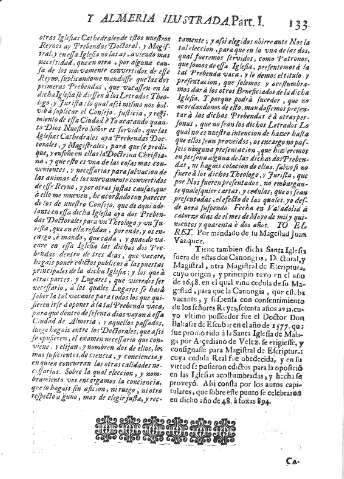 Y ALMERIA ILUSTRADA, Part. I. 133
otras Iglesias Cathedrales de estos nuestros
Reynos ay Prebendas Doctoral, y Magistral,
y en essa Iglesia no las ay, aviendo mas
necessidad, que en otra, por
de los nuevamente convertidos de esse
Reyno, suplicandome mandasse que las dos
primeras Prebendas, que vacassen en la
dicha Iglesia se diessen à los Letrados Theologo,
y Jurista; lo qual assi mismo nos bolviò
à suplicar el Consejo, Justicia, y regimiento
de essa Ciudad
Dios Nuestro Señor es servido, que las
Iglesias Cathedrales aya Prebendas Doctorales,
y Magistrales, para que se predique,
y enseñe en ellas la Doctrina Christiana,
y que este es una de las cosas mas convenientes,
y necessarias para salvacion de
las animas de los nuevamente convertidos
de esse Reyno, y por otras justas causas, que
à ello me mueven, he acordado con parecer
de los de nuestro Consejo, que de aqui adelante
en essa dicha Iglesia aya dos Prebendas
Doctorales para un Theologo, y un Jurista,
que en ella residan, por ende, yo os encargo,
è mando, que cada, y quando vacare
en essa Iglesia las dichas dos Prebendas
dentro de tres dias, que vacare,
hagais poner edictos publicos à las puertas
principales de la dicha Iglesia, y los que à
otras partes, y Lugares, que vieredes ser
necessario, à los quales Lugares se harà
saber la tal vacante para todos los que quisieren
irse à oponer à la tal Prebenda vaca,
para que dentro de sesenta dias vayan à essa
Ciudad de Almeria, y aquellos passados,
luego hagais entre los Doctorales, que assi
se opusieren, el examen necessario que conviene,
y elijan, y nombren dos de ellos, los
mas suficientes de sciencia, y conciencia, y
en quien concurren las otras calidades necessarias.
Sobre la qual eleccion, y nombramiento
vos encargamos la conciencia,
que lo hagais sin aficion, ni ruego, ni otro
respecto alguno, mas de elegir justa, y rectamente,
y assi elegidos
tal eleccion, para que en la uno de los dos,
qual fueremos servidos, como Patronos,
que somos de essa Iglesia, presentarà à la
tal Prebenda vaca, y le demos el titulo, y
presentacion, que solemos, y acostumbramos
dar à los otros Beneficiados de la dicha
Iglesia. Y porque podrà suceder, que no
acordandonos de ello, mandassemos presentar
à las dichas Prebendas à otras personas,
que no sean los dichos Letrados. Lo
qual no es nuestra intencion de hacer hasta
que ellos sean proveidos, os encargo no passeis
ninguna presentacion, que hicieremos
en persona alguna de las dichas dos Prebendas,
ni hagais colacion de ellas, salvo si no
fuere à los dichos Theologo, y Jurista, que
por Nos fueren presentados, no embargante
qualesquier cartas, y cedulas, que os sean
presentadas, el efecto de las quales,
de otra suspendo. Fecha en Valladolid à
catorze dias de el mes de Mayo de mil y quinientos
y quarenta y dos años. YO EL
REY. Por mandado de su Magestad Juan
Vazquez.
Tiene tambien dicha Santa Iglesia
fuera de estas dos Canongias, Doctoral, y
Magistral, otra Magistral de Escriptura,
cuyo origen, y principio tuvo en el año
de 1648. en el qual vino cedula de su Magestad,
para que la Canongia, que estaba
vacante, y suspensa con consentimiento
de los señores Reyes setenta años avia, cuyo
ultimo posseedor fue el Doctor Don
Francisco de Escobar en el año de 1577. que
fue promovido à la Santa Iglesia de Malaga
por Arcediano de Velez, se erigiesse, y
consignasse para Magistral de Escriptura:
cuya cedula Real fue obedecida, y en su
virtud se pusieron edictos para la oposicion
en las Iglesias acostumbradas, y hecha se
proveyò. Assi consta por los autos capitulares,
que sobre este punto se celebraron
en dicho año de 48. à foxas 894.
Ca-